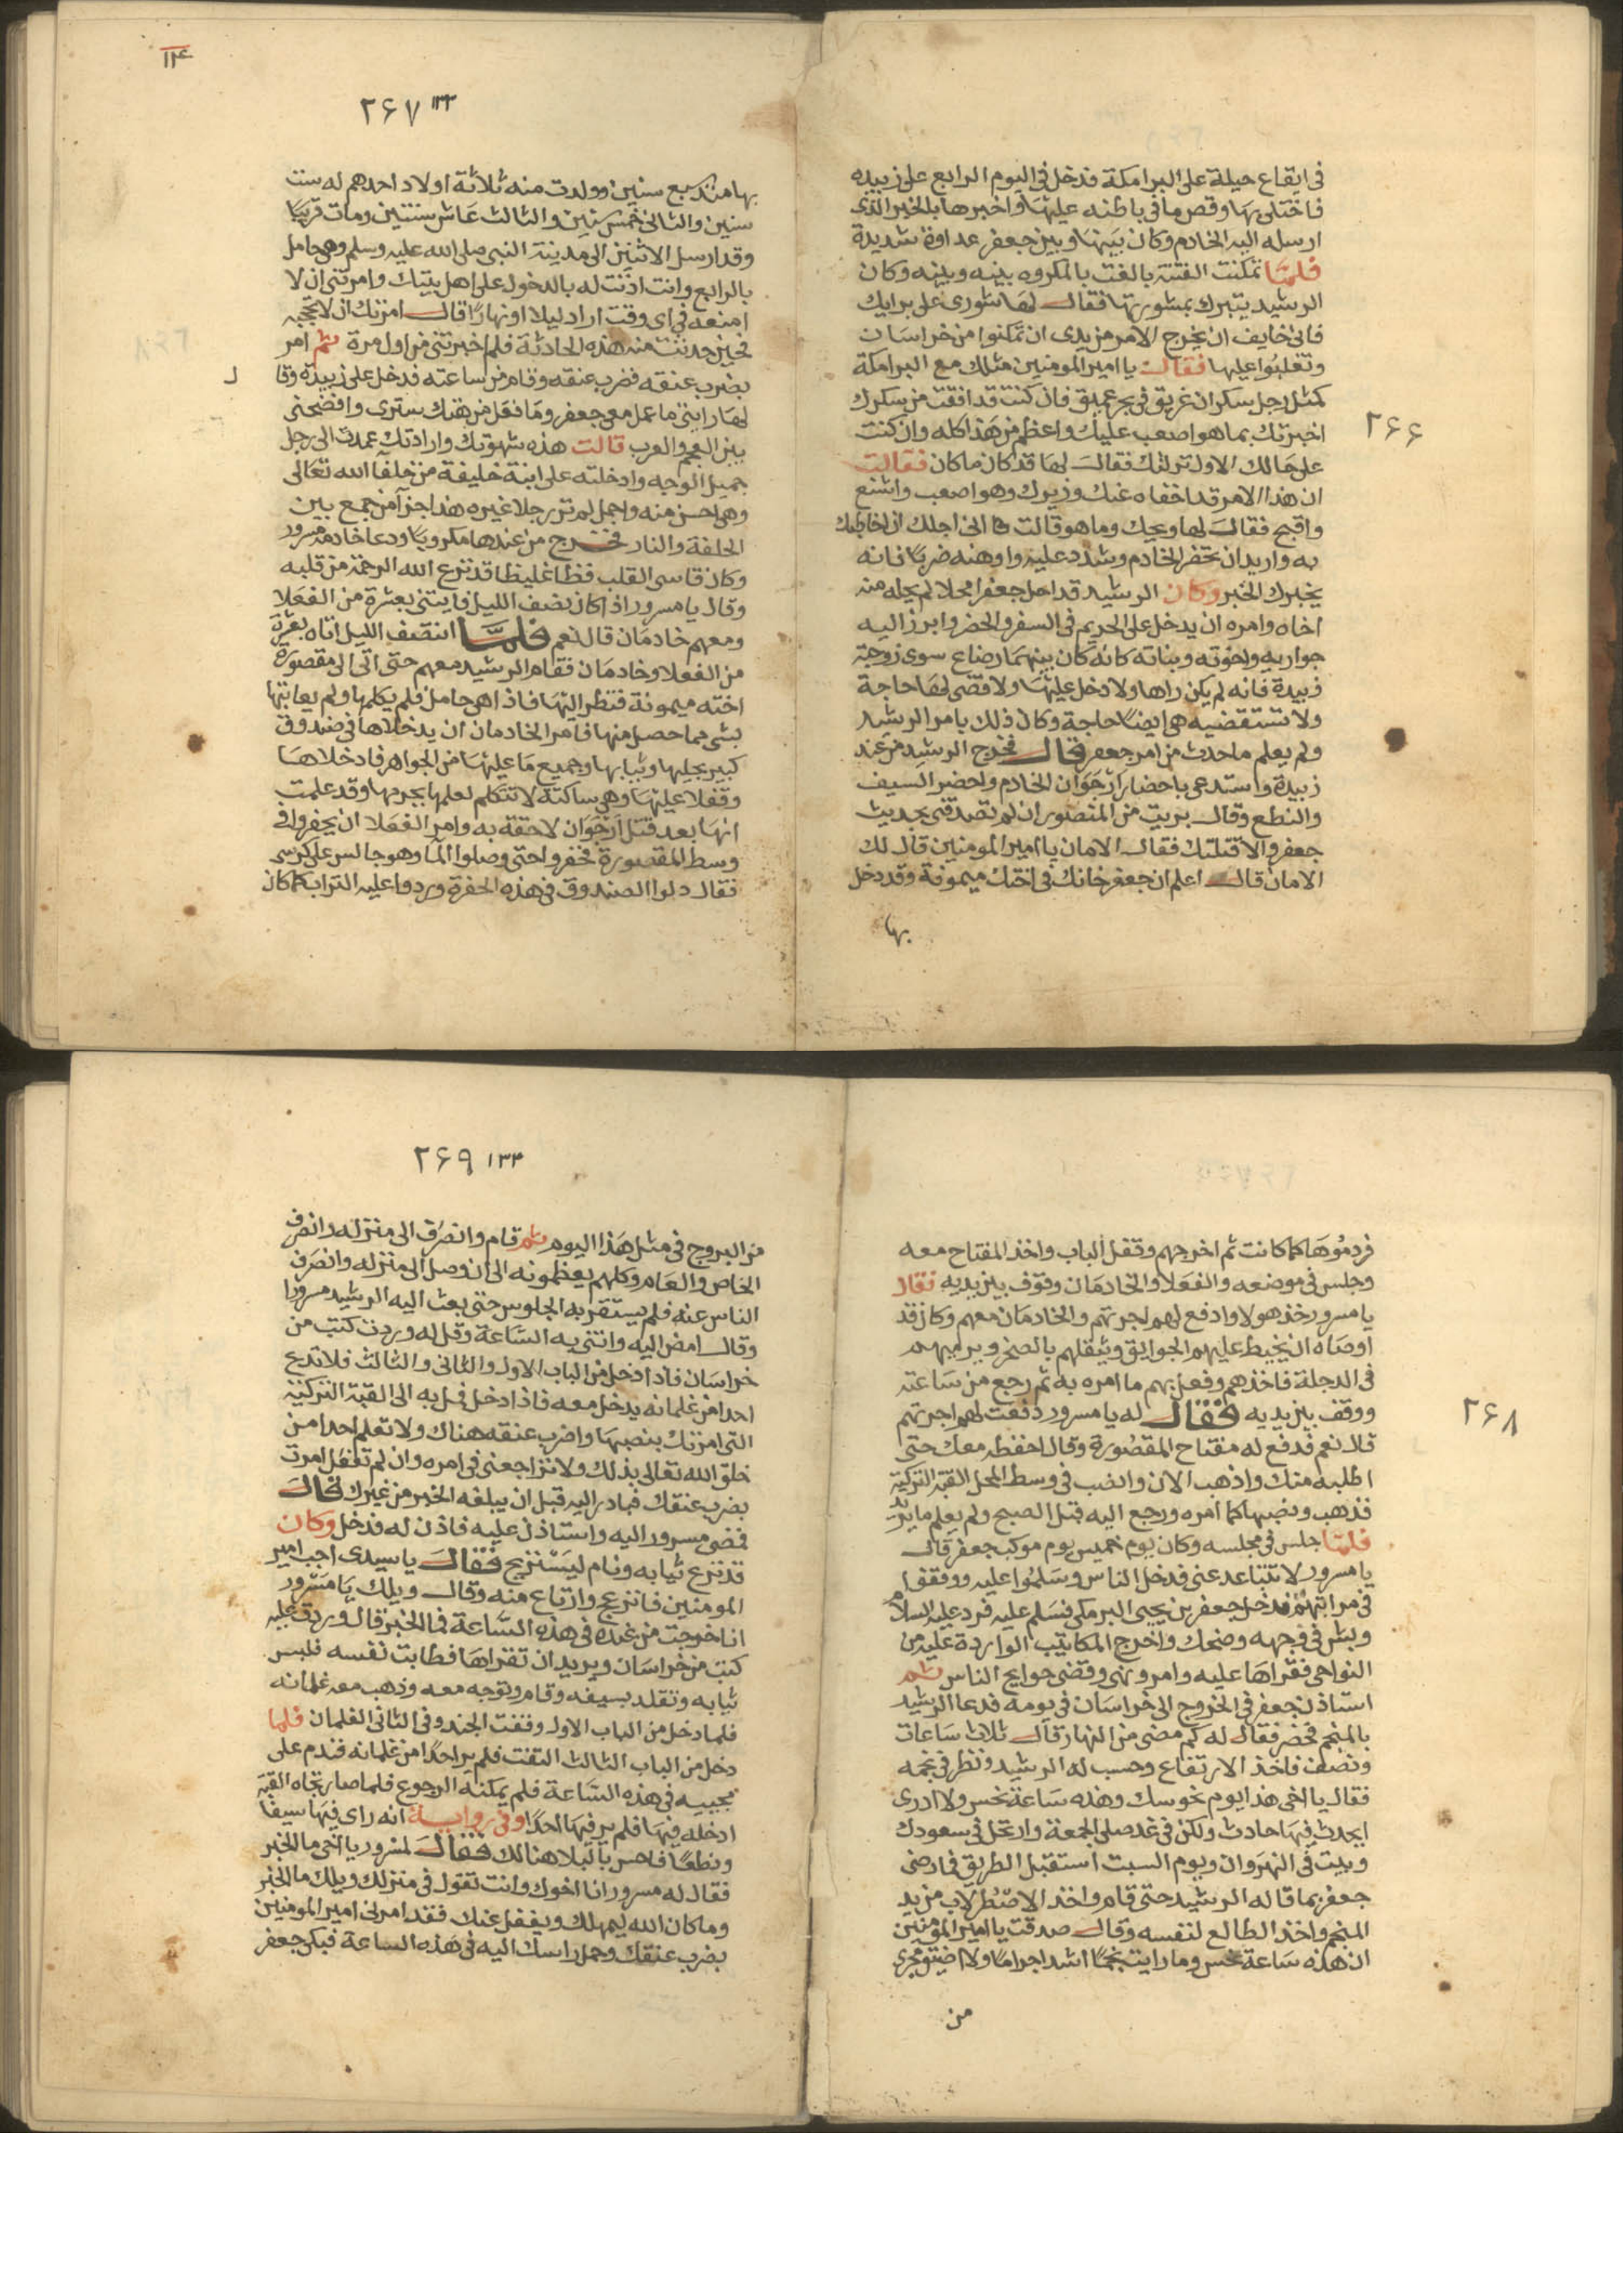 في ايقاع حيلة على البرامكة فدخل في اليوم الرابع على زبيده
فاختلى بها وقص ما في باطنه عليها واخبرها بالخبر الذى
ارسله اليه الخادم وكان بينها وبين جعفر عداوة شديدة
فلما تمكنت الفتنة بالغت بالمكروه بينه وبينه وكان
الرشيد يتبرك بمشورتها فقال لها شورى على برايك
فانى خايف ان يخرج الامر من يدى ان تمكنوا من خراسان
وتغلبوا عليها فقالت يا امير المومنين مثلك مع البرامكة
كمثل رجل سكران غريق في بحر عميق فان كنت قد افقت من سكرك
اخبرتك بما هو اصعب عليك واعظم من هذا كله وان كنت
على حالك الاول تركتك فقال لها قد كان ما كان فقالت
ان هذا الامر قد اخفاه عنك وزيرك وهو اصعب واشنع
واقبح فقال لها ويحك وما هو قالت انى اجلك ان اخاطبك
به واريد ان تحضر الخادم وتشدد عليه واوهنه ضربا فانه
يخبرك الخبر وكان الرشيد قد احل جعفرا محلا لم يحله منه
اخاه وامره ان يدخل على الحريم في السفر والحضر وابرز اليه
جواريه واخوته وبناته كانه كان بينهما رضاع سوى زوجته
زبيدة فانه لم يكن راها ولا دخل عليها ولا قضى لها حاجة
ولا تستقضيه هى ايضا حاجة وكان ذلك بامر الرشيد
ولم يعلم ما حدث من امر جعفر قال فخرج الرشيد من عند
زبيدة واستدعى باحضار ارجوان الخادم واحضر السيف
والنطع وقال بريت من المنصور ان لم تصدقنى بحديث
جعفر والا قتلتك فقال الامان يا امير المومنين قال لك
الامان قال اعلم ان جعفر خانك في اختك ميمونة وقد دخل
بها
٢٦٦
١١٤
٢٦٧ ١٣٣
بها منذ سبع سنين وولدت منه ثلاثة اولاد احدهم له ست
سنين والثانى خمس سنين والثالث عاش سنتين ومات قريبا
وقد ارسل الاثنين الى مدينة النبى صلى الله عليه وسلم وهى حامل
بالرابع وانت اذنت له بالدخول على اهل بيتك وامرتنى ان لا
امنعه في اى وقت اراد ليلا او نهارا قال امرتك ان لا تحجبه
فحين حدثت منه هذه الحادثة فلم اخبرتنى من اول مرة ثم امر
بضرب عنقه فضرب عنقه وقام من ساعته فدخل على زبيده وقا
ل
لها رايتى ما عمل معى جعفر وما فعل من هتك سترى وافضحنى
بين العجم والعرب قالت هذه شهوتك وارادتك عمدت الى رجل
جميل الوجه وادخلته على ابنة خليفة من خلفا الله تعالى
وهى احسن منه واجمل لم تر رجلا غيره هذا جزا من جمع بين
الحلفة والنار فخرج من عندها مكروبا ودعا خادمه مسرور
وكان قاسى القلب فظا غليظا قد نزع الله الرحمة من قلبه
وقال يا مسرور اذا كان نصف الليل فايتنى بعشرة من الفعلا
ومعهم خادمان قال نعم فلما انتصف الليل اتاه بعشرة
من الفعلا وخادمان فقام الرشيد معهم حتى اتى الى مقصورة
اخته ميمونة فنظر اليها فاذا هى حامل فلم يكلمها ولم يعاتبها
بشى مما حصل منها فامر الخادمان ان يدخلاها في صندوق
كبير بحليها وثيابها وجميع ما عليها من الجواهر فادخلاها
وقفلا عليها وهى ساكتة لا تتكلم لعلمها بجرمها وقد علمت
انها بعد قتل ارجوان لاحقة به وامر الفعلا ان يحفروا في
وسط المقصورة فحفروا حتى وصلوا الما وهو جالس على كرسى
فقال دلوا الصندوق في هذه الحفرة وردوا عليه التراب كما كان
فردموها كما كانت ثم اخرجهم وقفل الباب واخذ المفتاح معه
وجلس في موضعه والفعلا والخادمان وقوف بين يديه فقال
يا مسرور خذ هولا وادفع لهم اجرتهم والخادمان معهم وكان قد
اوصاه ان يخيط عليهم الجوالق ويثقلهم بالصخر ويرميهم
في الدجلة فاخذهم وفعل بهم ما امره به ثم رجع من ساعته
ووقف بين يديه فقال له يا مسرور دفعت لهم اجرتهم
قال نعم فدفع له مفتاح المقصورة وقال احفظه معك حتى
اطلبه منك واذهب الان وانصب في وسط المحل القبة التركية
فذهب ونصبها كما امره ورجع اليه قبل الصبح ولم يعلم ما يريد
فلما جلس في مجلسه وكان يوم خميس يوم موكب جعفر قال
يا مسرور لا تتباعد عنى فدخل الناس وسلموا عليه ووقفوا
في مراتبهم فدخل جعفر بن يحيى البرمكى فسلم عليه فرد عليه السلام
وبش في وجهه وضحك واخرج المكاتيب الواردة عليه من
النواحى فقراها عليه وامر ونهى وقضى حوايج الناس ثم
استاذن جعفر في الخروج الى خراسان في يومه فدعا الرشيد
بالمنجم فحضر فقال له كم مضى من النهار قال ثلاث ساعات
ونصف فاخذ الارتفاع وحسب له الرشيد ونظر في نجمه
فقال يا اخى هذا يوم نحوسك وهذه ساعة نحس ولا ادرى
ايحدث فيها حادث ولكن في غد صلى الجمعة وارتحل في سعودك
وبيت في النهروان ويوم السبت استقبل الطريق فما رضى
جعفر بما قاله الرشيد حتى قام واخذ الاصطرلاب من يد
المنجم واخذ الطالع لنفسه وقال صدقت يا امير المومنين
ان هذه ساعة نحس وما رايت نجما اشد اجراما ولا اضيق مجرى
من
٢٦٨
٢٦٩ ١٣٤
من البروج في مثل هذا اليوم ثم قام وانصرف الى منزله وانصرف
الخاص والعام وكلهم يعظمونه الى ان وصل الى منزله وانصرف
الناس عنه فلم يستقر به الجلوس حتى بعث اليه الرشيد مسرورا
وقال امض اليه وائتنى به الساعة وقل له وردت كتب من
خراسان فاذا دخل من الباب الاول والثانى والثالث فلا تدع
احدا من غلمانه يدخل معه فاذا دخل فمل به الى القبة التركية
التى امرتك بنصبها واضرب عنقه هناك ولا تعلم احدا من
خلق الله تعالى بذلك ولا تراجعنى في امره وان لم تفعل امرت
بضرب عنقك فبادر اليه قبل ان يبلغه الخبر من غيرك قال
فمضى مسرور اليه واستاذن عليه فاذن له فدخل وكان
قد نزع ثيابه ونام ليستريح فقال يا سيدى اجب امير
المومنين فانزعج وارتاع منه وقال ويلك يا مسرور
انا خرجت من عنده في هذه الساعة فما الخبر قال وردت عليه
كتب من خراسان ويريد ان تقراها فطابت نفسه فلبس
ثيابه وتقلد بسيفه وقام وتوجه معه وذهب معه غلمانه
فلما دخل من الباب الاول وقفت الجند وفي الثانى الغلمان فلما
دخل من الباب الثالث التفت فلم ير احدا من غلمانه فندم على
مجييه في هذه الساعة فلم يمكنه الرجوع فلما صار تجاه القبة
ادخله فيها فلم ير فيها احدا وفي رواية انه راى فيها سيفا
ونطعا فاحس بالبلا هنالك فقال لمسرور يا اخى ما الخبر
فقال له مسرور انا اخوك وانت تقول في منزلك ويلك ما الخبر
وما كان الله ليمهلك ويغفل عنك فقد امرنى امير المومنين
بضرب عنقك وحمل راسك اليه في هذه الساعة فبكى جعفر